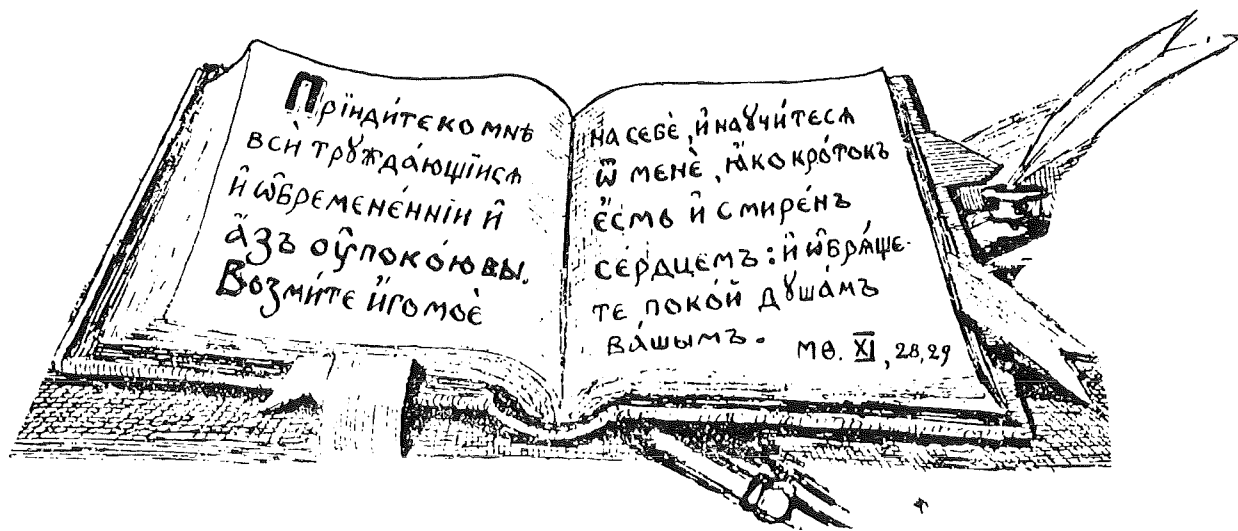 Прїиди́те ко мнѣ
всѝ трꙋжда́ющїисѧ
и҆ ѡ҆бремене́ннїи и҆
а҆́зъ оу҆поко́ю вы.
Возми́те и҆́го моѐ
на себѐ, и҆ наꙋчи́тесѧ
ѿ менѐ, ꙗ҆́кѡ кро́токъ
є҆́смь и҆ смире́нъ
се́рдцемъ: и҆ ѡ҆брѧ́ще-
те поко́й дꙋша́мъ
ва́шымъ.
Мѳ. XI, 28,29